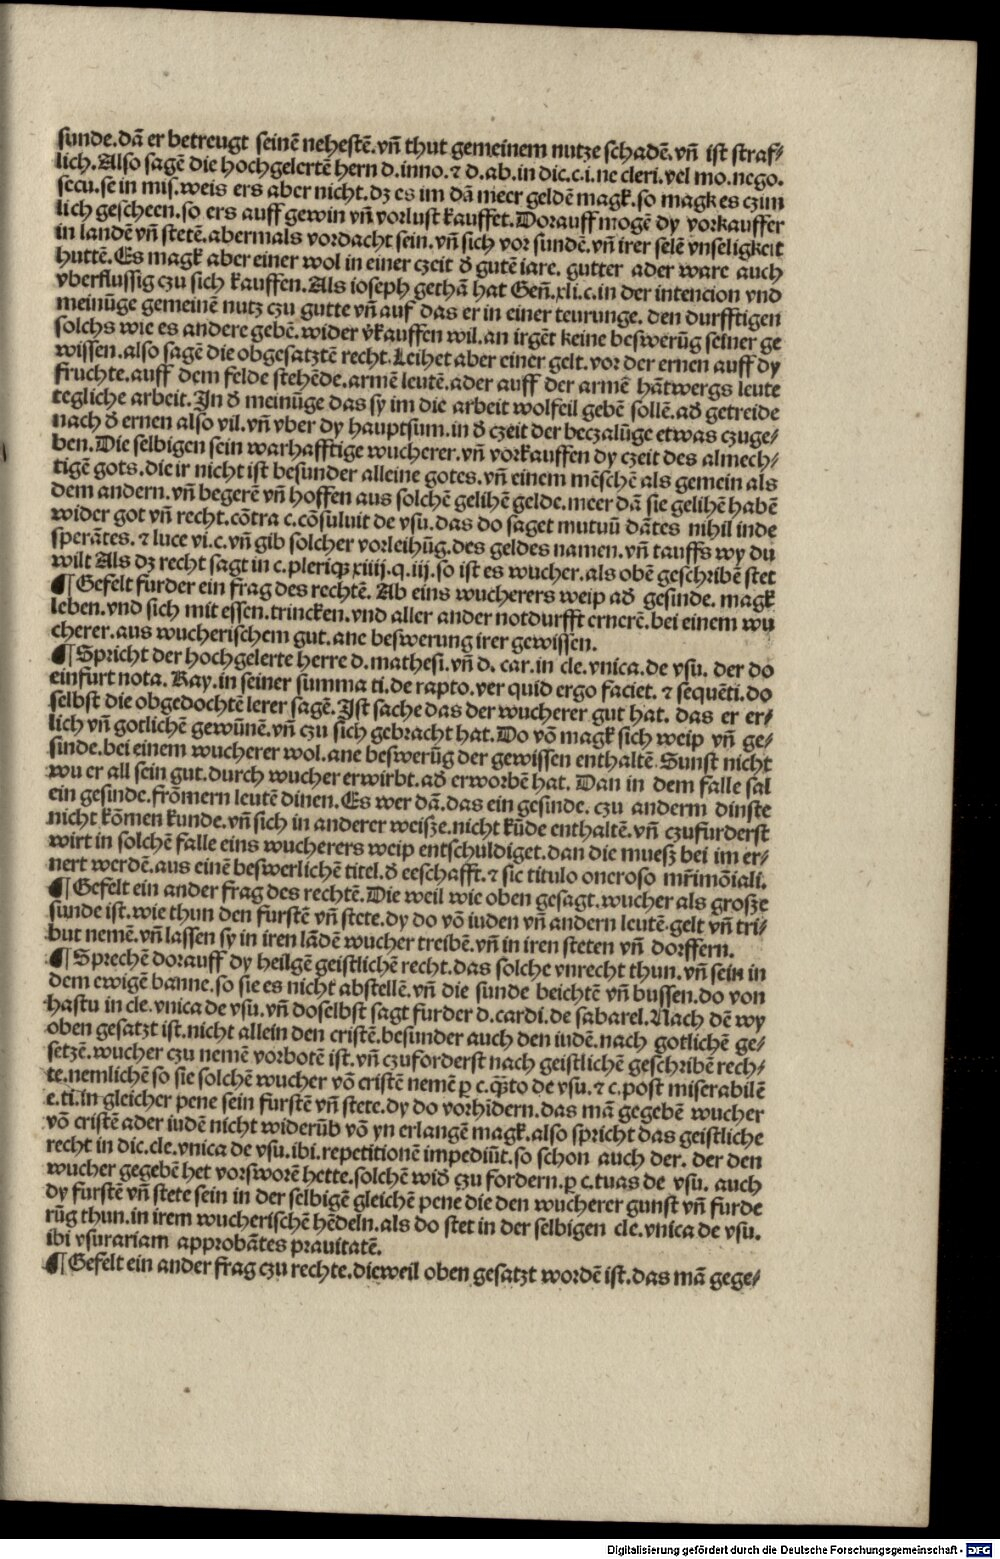 sunde.dā er betreugt seinē nehestē.vñ thut gemeinem nutze schadē.vñ ist straf⸗
lich.Also sagē die hochgelertē hern d.inno.⁊ d.ab.in dic.c.i.ne cleri.vel mo.nego.
secu.se in mis.weis ers aber nicht.dz es im dā meer geldē magk.so magk es czim
lich gescheen.so ers auff gewin vñ vorlust kauffet.Dorauff mogē dy vorkauffer
in landē vñ stetē.abermals vordacht sein.vñ sich vor sundē.vñ irer selē vnseligkeit
huttē.Es magk aber einer wol in einer czeit d̄ gutē iare. gutter ader ware auch
vberflussig czu sich kauffen.Als ioseph gethā hat Geñ.xli.c.in der intencion vnd
meinūge gemeinē nutz czu gutte vñ auf das er in einer teurunge. den durfftigen
solchs wie es andere gebē.wider v̄kauffen wil.an irgēt keine beswerūg seiner ge
wissen.also sagē die obgesatztē recht.Leihet aber einer gelt.vor der ernen auff dy
fruchte.auff dem felde stehēde.armē leutē.ader auff der armē hātwergs leute
tegliche arbeit.In d̄ meinūge das sy im die arbeit wolfeil gebē sollē.ad̄ getreide
nach d̄ ernen also vil.vñ vber dy hauptsum.in d̄ czeit der beczalūge etwas czuge⸗
ben.Die selbigen sein warhafftige wucherer.vñ vorkauffen dy czeit des almech⸗
tigē gots.die ir nicht ist besunder alleine gotes.vñ einem mēschē als gemein als
dem andern.vñ begerē vñ hoffen aus solchē gelihē gelde.meer dā sie gelihē habē
wider got vñ recht.cōtra c.cōsuluit de vsu.das do saget mutuū dātes nihil inde
sperātes.⁊ luce vi.c.vñ gib solcher vorleihūg.des geldes namen.vñ tauffs wy du
wilt Als dz recht sagt in c.pleriqȝ xiiij.q.iij.so ist es wucher.als obē geschribē stet
¶ Gefelt furder ein frag des rechtē. Ab eins wucherers weip ad̄ gesinde. magk
leben.vnd sich mit essen.trincken.vnd aller ander notdurfft ernerē.bei einem wu
cherer.aus wucherischem gut.ane beswerung irer gewissen.
¶ Spricht der hochgelerte herre d.mathesi.vñ d. car.in cle.vnica.de vsu. der do
einfurt nota. Ray.in seiner summa ti.de rapto.ver quid ergo faciet. ⁊ sequēti.do
selbst die obgedochtē lerer sagē.Ist sache das der wucherer gut hat. das er er⸗
lich vñ gotlichē gewūnē.vñ czu sich gebracht hat.Do vō magk sich weip vñ ge⸗
sinde.bei einem wucherer wol.ane beswerūg der gewissen enthaltē.Sunst nicht
wu er all sein gut.durch wucher erwirbt.ad̄ erworbē hat. Dan in dem falle sal
ein gesinde.frōmern leutē dinen.Es wer dā.das ein gesinde. czu anderm dinste
nicht kōmen kunde.vñ sich in anderer weiße.nicht kūde enthaltē.vñ czufurderst
wirt in solchē falle eins wucherers weip entschuldiget.dan die mueß bei im er⸗
nert werdē.aus einē beswerlichē titel.d̄ eeschafft.⁊ sic titulo oneroso mr̄imōiali.
¶ Gefelt ein ander frag des rechtē.Die weil wie oben gesagt.wucher als große
sunde ist.wie thun den furstē vñ stete.dy do vō iuden vñ andern leutē.gelt vñ tri⸗
but nemē.vñ lassen sy in iren lādē wucher treibē.vñ in iren steten vñ dorffern.
¶ Sprechē dorauff dy heilgē geistlichē recht.das solche vnrecht thun.vñ sein in
dem ewigē banne.so sie es nicht abstellē.vñ die sunde beichtē vñ bussen.do von
hastu in cle.vnica de vsu.vñ doselbst sagt furder d.cardi.de sabarel.Nach dē wy
oben gesatzt ist.nicht allein den cristē.besunder auch den iudē.nach gotlichē ge⸗
setzē.wucher czu nemē vorbotē ist.vñ czuforderst nach geistlichē geschribē rech⸗
te.nemlichē so sie solchē wucher vō cristē nemē ꝑ c.qͣto de vsu.⁊ c.post miserabilē
e.ti.in gleicher pene sein furstē vñ stete.dy do vorhīdern.das mā gegebē wucher
vō cristē ader iudē nicht widerūb vō yn erlangē magk.also spricht das geistliche
recht in dic.cle.vnica de vsu.ibi.repetitionē impediūt.so schon auch der. der den
wucher gegebē het vorsworē hette.solchē wid̄ czu fordern.ꝑ c.tuas de vsu. auch
dy furstē vñ stete sein in der selbigē gleichē pene die den wucherer gunst vñ furde
rūg thun.in irem wucherischē hēdeln.als do stet in der selbigen cle.vnica de vsu.
ibi vsurariam approbātes prauitatē.
¶ Gefelt ein ander frag czu rechte.dieweil oben gesatzt wordē ist.das mā gege⸗
Digitalisierung gefördert durch die Deutsche Forschungsgemeinschaft - DFG